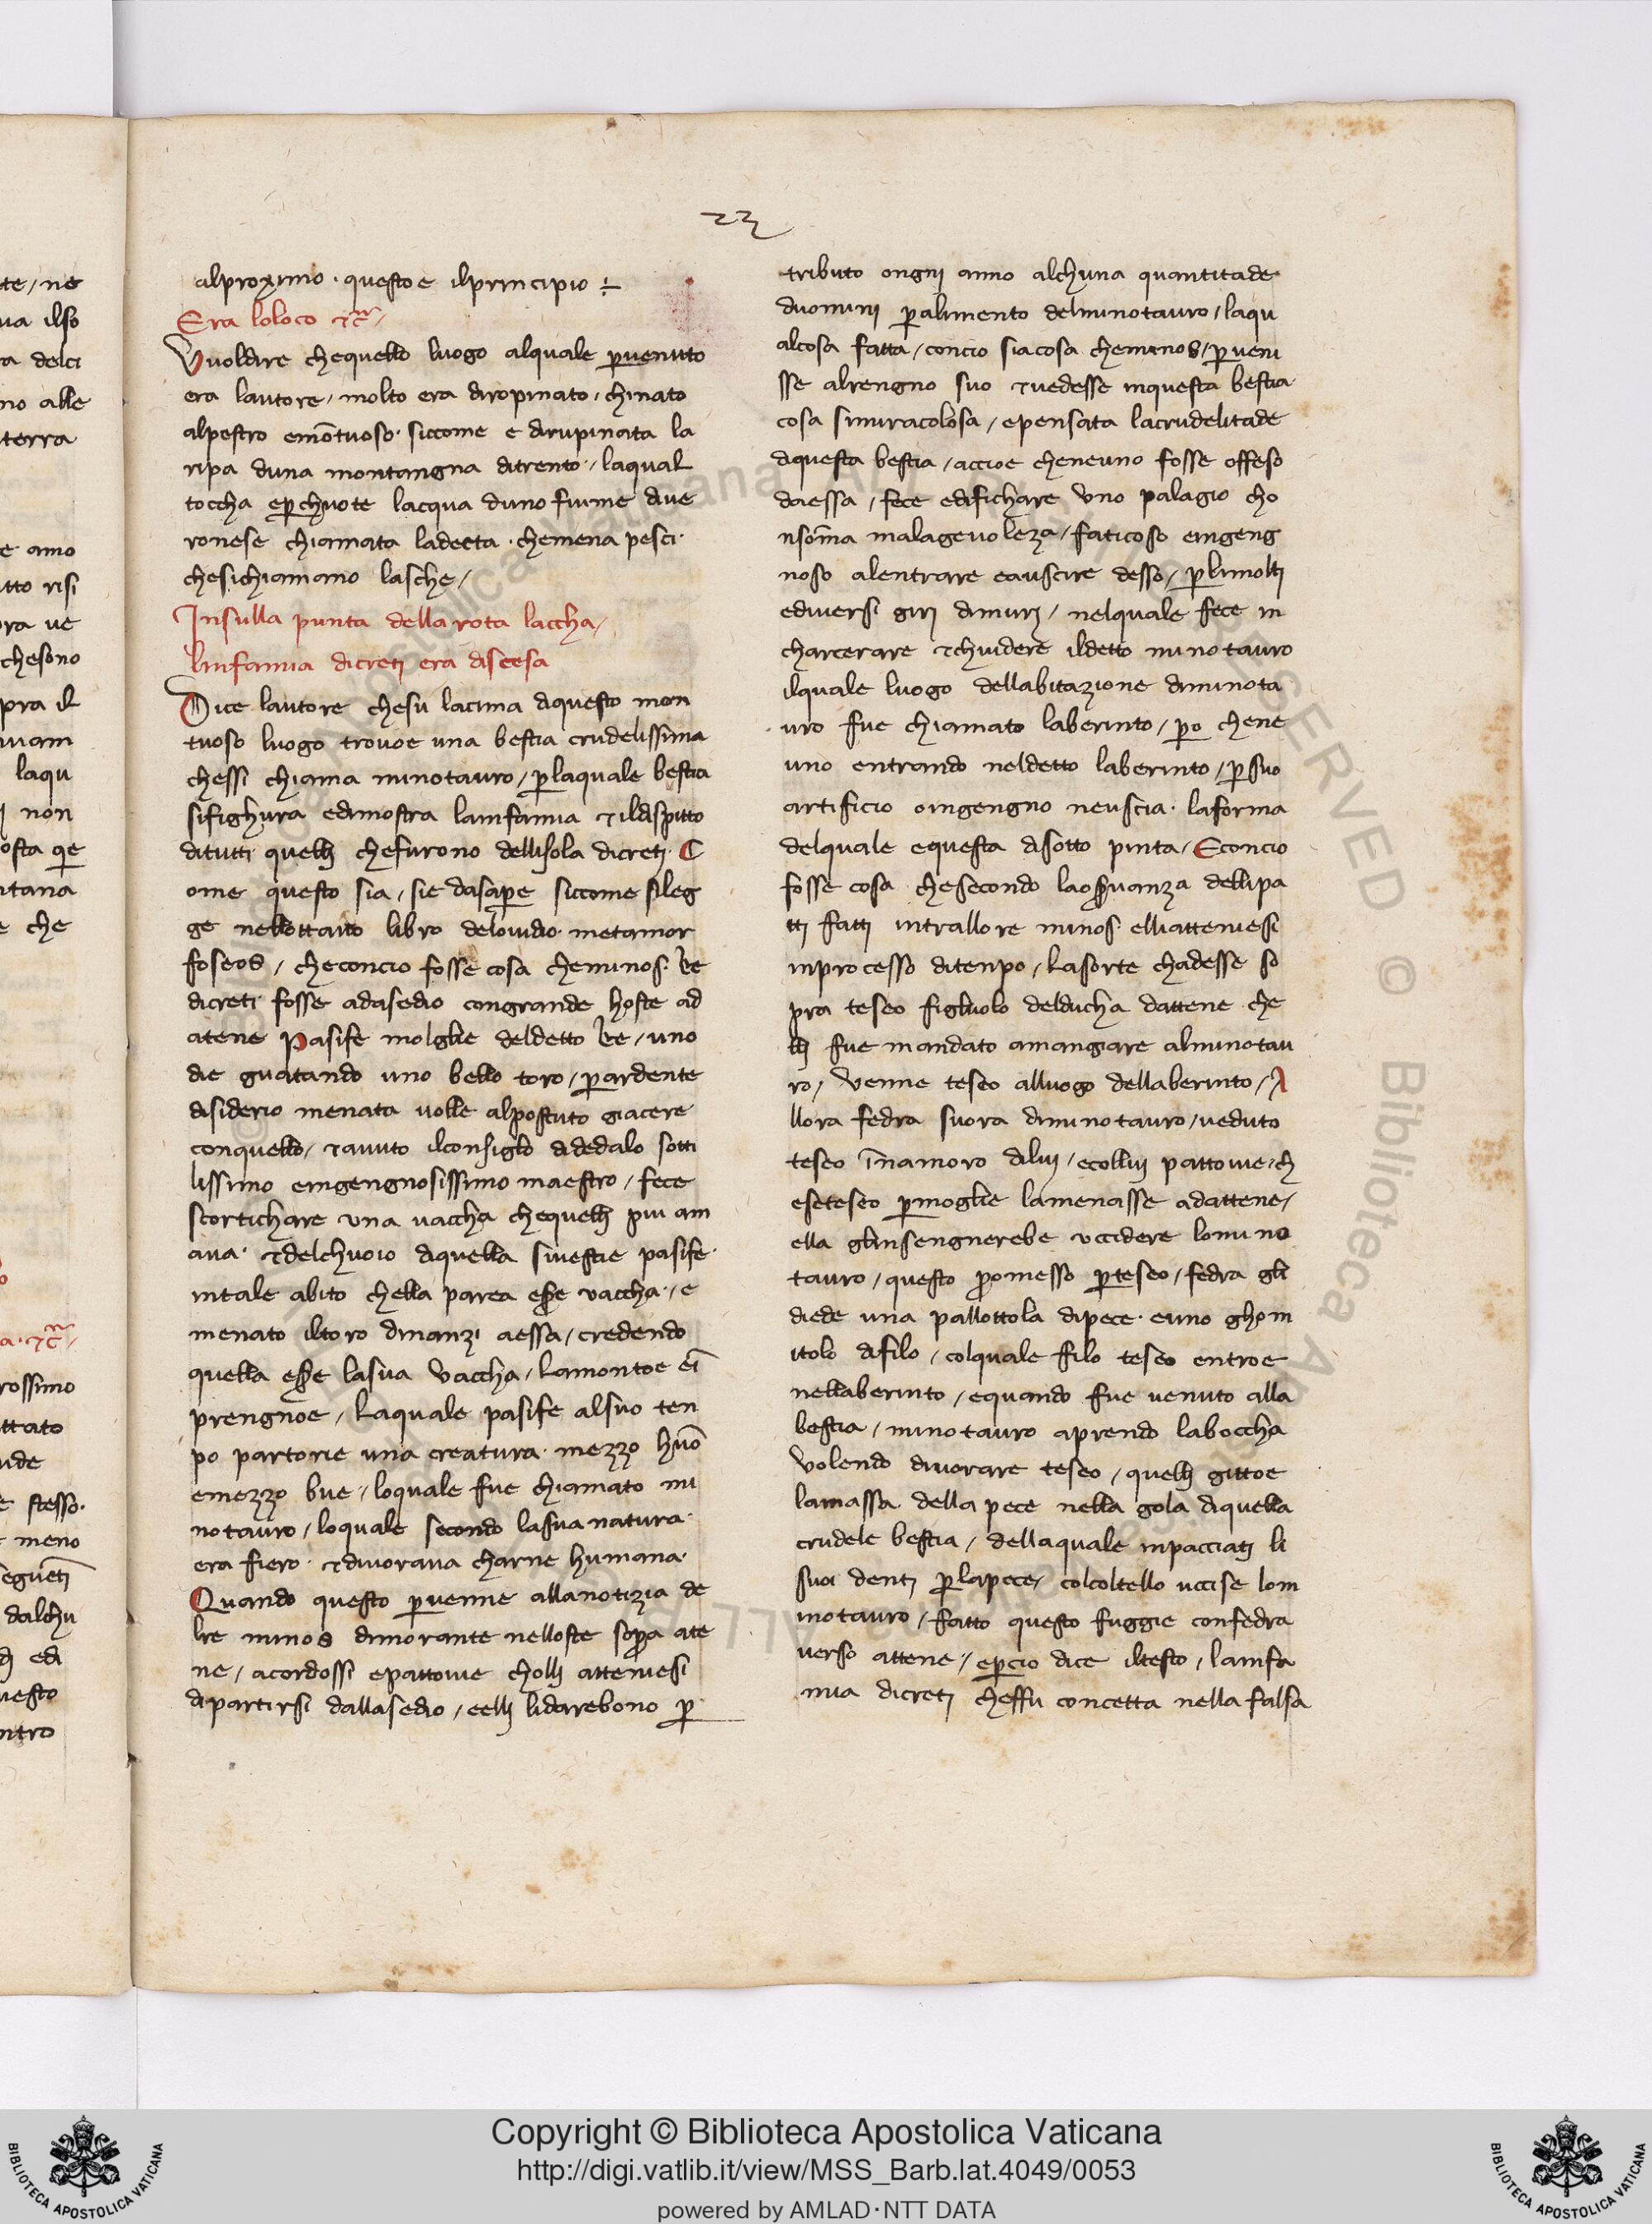 22
alproximo · questoe ilprincipio
Era loloco
Vuoldire chequello luogo alquale pervenuto
era lautore / molto era diropinato · chinato
alpestro emontuoso · siccome e dirupinata la
ripa duna montangna ditrento / laqual
toccha eperchuote lacqua duno fiume dive
ronese chiamata ladecta · chemena pesci ·
chesichiamano lasche /
Insulla punta della rota laccha /
linfamia dicreti era discesa
Dice lautore chesu lacima diquesto mon
tuoso luogo trovoe una bestia crudelissima
chessi chiama minotauro / perlaquale bestia
sifighura edimostra lamfamia ildispitto
ditutti quelli chefurono dellisola dicreti · C
ome questo sia / sie dasapere siccome sileg
ge nellottavo libro delovidio · metamor
foseos / checoncio fosse cosa cheminos · re
dicreti fosse adasedio congrande hoste ad
atene Pasife molglie deldetto re / uno
die guatando uno bello toro / perardente
disiderio menata volle alpostuto giacere
conquello / avuto ilconsiglo didedalo sotti
lissimo eingengnosissimo maestro / fece
scortichare una vaccha chequelli piu am
ava · delchuoio diquella sivestie pasife ·
intale abito chella parea essere vaccha · / e
menato iltoro dinanzi aessa / credendo
quella essere lasua vaccha / lamontoe ei
prengnoe / laquale pasife alsuo ten
po partorie una creatura · mezzo huo
emezzo bue / loquale fue chiamato mi
notauro / loquale secondo lasua natura ·
era fiero · divorava charne humana ·
Quando questo pervenne allanotizia de
lre minos dimorante nelloste sopra ate
ne / acordossi epattovie cholli atteniesi
dipartirsi dallasedio / eelli lidarebono per
tributo ongni anno alchuna quantitade
duomini peralimento delminotauro / laqu
alcosa fatta / concio siacosa cheminos / perveni
sse alrengno suo vedesse inquesta bestia
cosa simiracolosa / epensata lacrudelitade
diquesta bestia / accioe cheneuno fosse offeso
daessa / fece edifichare uno palagio cho
nsoma malagevoleza / faticoso eingeng
noso alentrare eauscire desso / perlimolti
ediversi giri dimuri / nelquale fece in
charcerare chiudere ildetto minotauro
ilquale luogo dellabitazione diminota
uro fue chiamato laberinto / pero chene
uno entrando neldetto laberinto / persuo
artificio oingengno neuscia · laforma
delquale equesta disotto pinta / Econcio
fosse cosa chesecondo laoservanza dellipa
tti fatti intrallore minos elliatteniesi
inprocesso ditenpo / lasorte chadesse so
pra teseo figliuolo delducha dattene che
lli fue mandato amangiare alminotau
ro / venne teseo alluogo dellaberinto / A
llora fedra suora diminotauro / veduto
teseo inamoro dilui / ecollui pattovie / ch
eseteseo permoglie lamenasse adattene /
ella glinsengnerebe uccidere lomino
tauro / questo promesso perteseo / fedra gli
diede una pallottola dipece · euno ghom
itolo difilo / colquale filo teseo entroe
nellaberinto / equando fue venuto alla
bestia / minotauro aprendo laboccha
volendo divorare teseo / quelli gittoe
lamassa della pece nella gola diquella
crudele bestia / dellaquale inpacciati li
suoi denti perlapece / colcoltello uccise lom
inotauro / fatto questo fuggie confedra
verso attene / epercio dice iltesto / lamfa
mia dicreti cheffu concetta nella falsa
Copyright © Biblioteca Apostolica Vaticana
http://digi.vatlib.it/view/MSS_Barb.lat.4049/0053
powered by AMLAD·NTT DATA
BIBLIOTECA APOSTOLICA VATICANA
BIBLIOTECA APOSTOLICA VATICANA